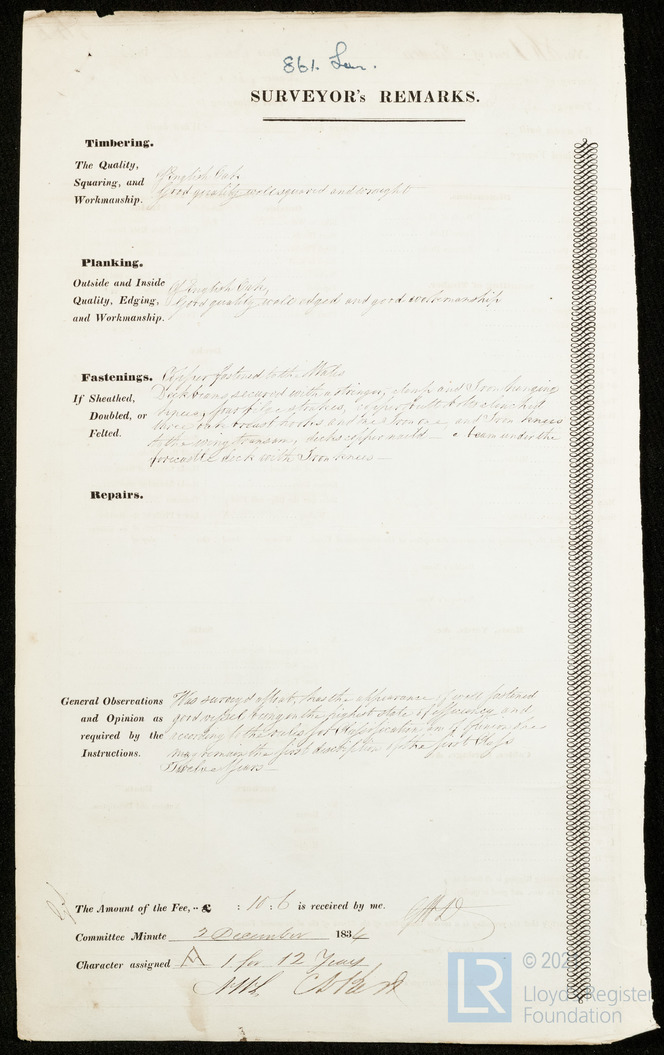 861. Lon.
SURVEYOR's REMARKS.
Timbering.
The Quality,
Squaring, and
Workmanship.
Of English Oak
Good quality, well squared and wrought
Planking.
Outside and Inside
Quality, Edging,
and Workmanship.
Of English Oak,
Good quality, well edged and good workmanship
Fastenings.
If Sheathed,
Doubled, or
Felted.
Copper fastened to the
Deck beams secured with a stringer, clamp and Iron hanging
knees, copper bolts
three oak breast hooks and one Iron one, and Iron knees
to the wing transom, decks copper nailed — A beam under the
forecastle deck with Iron knees —
Repairs.
General Observations
and Opinion as
required by the
Instructions.
Was survey'd afloat, has the appearance of well fastened
good vessel being in the highest state of efficiency, and
according to the rules for Classification am of opinion she
may remain the first description of the first Class
Twelve Years —
The Amount of the Fee, .. £ : 10 : 6 is received by me.
Committee Minute 2 December 1834
Character assigned A 1 for 12 Years
LR
© 202
Lloyd's Register
Foundation